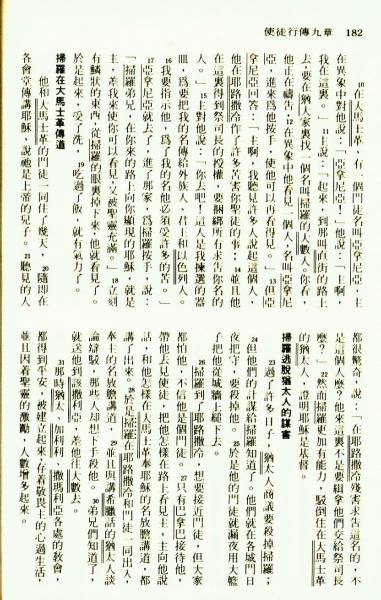 使徒行傳九章 182
10在大馬士革,有一個門徒名叫亞拿尼亞,主
在異象中對他說:「亞拿尼亞!」他說:「主啊,
我在這裏。」11主對他說:「起來!到那叫直街的路
去,要在猶大家裏找一個名叫掃羅的大數人。你看,
他正在禱告;12在異象中他看見一個人,名叫亞拿尼
亞,進來爲他按手,使他可以再看得見。」13但亞
拿尼亞回答:「主啊,我聽見許多人說起這個人,
他在耶路撒冷作了許多苦害你聖徒的事;14並且他
在這裏得到祭司長的授權,要捆綁所有求告你名的
人。」15主對他說:「你去吧!這人是我揀選的器
皿,爲要把我的名傳給外族人、君王和以色列人。
16我要指示他,爲了我的名他必須受許多的苦。」
17亞拿尼亞就去了,進了那家,爲掃羅按手,說:
「掃羅弟兄,在你來的路上向你顯現的耶穌,就是
主,差我來使你可以看見,又被聖靈充滿。」18立刻
有鱗狀的東西,從掃羅的眼裏掉下來,他就看見了。
於是起來,受了洗,19吃過了飯,就有氣力了。
掃羅在大馬士革傳道
他和大馬士革的門徒一同住了幾天,20隨即在
各會堂傳講耶穌,說祂是上帝的兒子。21聽見的人
都很驚奇,說:「在耶路撒冷殘害求告這名的,不
是這個人麼?他來這裏不是要緝拿他們交給祭司長
麼?」22然而掃羅更加有能力,駁倒住在大馬士革
的猶太人,證明耶穌是基督。
掃羅逃脫猶太人的謀害
23過了許多日子,猶太人商議要殺掉掃羅;
24但他們的計謀給掃羅知道了。他們就在各城門日
夜把守,要殺掉他。25於是他的門徒就漏夜用大籃
子把他從城牆上縋下去。
26掃羅到了耶路撒冷,想要接近門徒,但大家
都怕他,不信他是個門徒。27只有巴拿巴接待他,
帶他去見使徒,把他怎樣在路上看見主,主向他說
話,和他怎樣在大馬士革奉耶穌的名放膽講道,都
講了出來。28於是掃羅在耶路撒冷和門徒一同出入,
奉主的名放膽講道,29並且與講希臘話的猶太人談
論辯駁,那些人却想下手殺他。30弟兄們知道了,
就送他到該撒利亞,差他往大數去。
31那時猶太、加利利、撒瑪利亞各處的教會,
都得到平安,被建立起來,存着敬畏主的心過生活,
並且因着聖靈的激勵,人數增多起來。